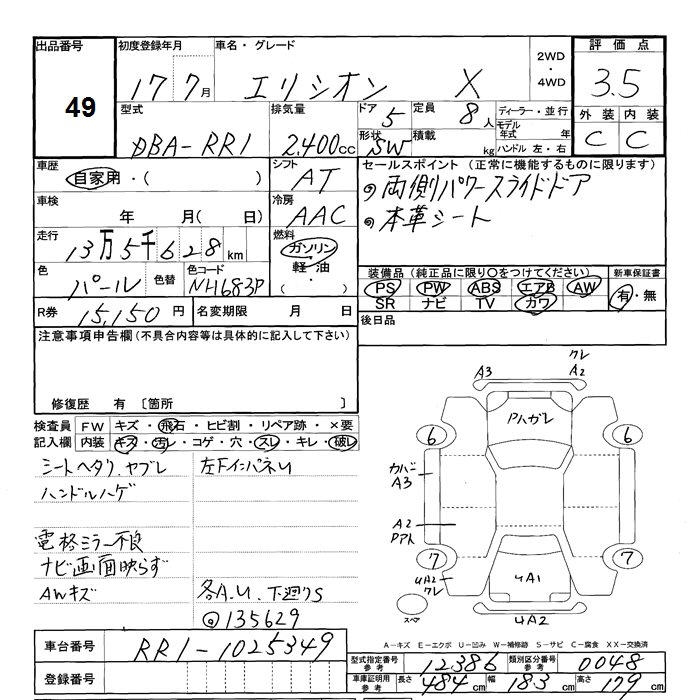 出品番号 49
初度登録年月 17 7月
車名・グレード エリシオン X
2WD・4WD
評価点 3.5
外装 C 内装 C
型式 DBA-RR1
排気量 2,400cc
ドア 5 形状 SW
定員 8人 積載 kg
ディーラー・並行
モデル年式 年
ハンドル 左・右
車歴 自家用・( )
シフト AT
セールスポイント(正常に機能するものに限ります)
両側パワースライドドア
本革シート
車検 年 月( 日)
冷房 AAC
走行 13万5千628km
燃料 ガソリン・軽油・( )
色 パール 色替
色コード NH683P
装備品(純正品に限り○をつけてください)
PS PW ABS エアB AW
SR ナビ TV カワ
新車保証書 有・無
R券 15,150円
名変期限 月 日
後日品
注意事項申告欄(不具合内容等は具体的に記入して下さい)
修復歴 有 〔箇所 〕
検査員記入欄
FW キズ・飛石・ヒビ割・リペア跡・×要
内装 キズ・汚レ・コゲ・穴・スレ・キレ・破レ
シートヘタリ、ヤブレ 左下インパネU
ハンドルハゲ
電格ミラー不良
ナビ画面映らず
AWキズ 各A.U.下廻りS
135629
A3 クレ A2
Pハガレ
6 6
カバー A3
A2 Pアト
7 7
UA2 クレ
UA1
スペア
UA2
A-キズ E-エクボ U-凹み W-補修跡 S-サビ C-腐食 XX-交換済
車台番号 RR1-1025349
登録番号
型式指定番号 参考 12386 類別区分番号 参考 0048
車庫証明用 参考 長さ 484cm 幅 183cm 高さ 179cm